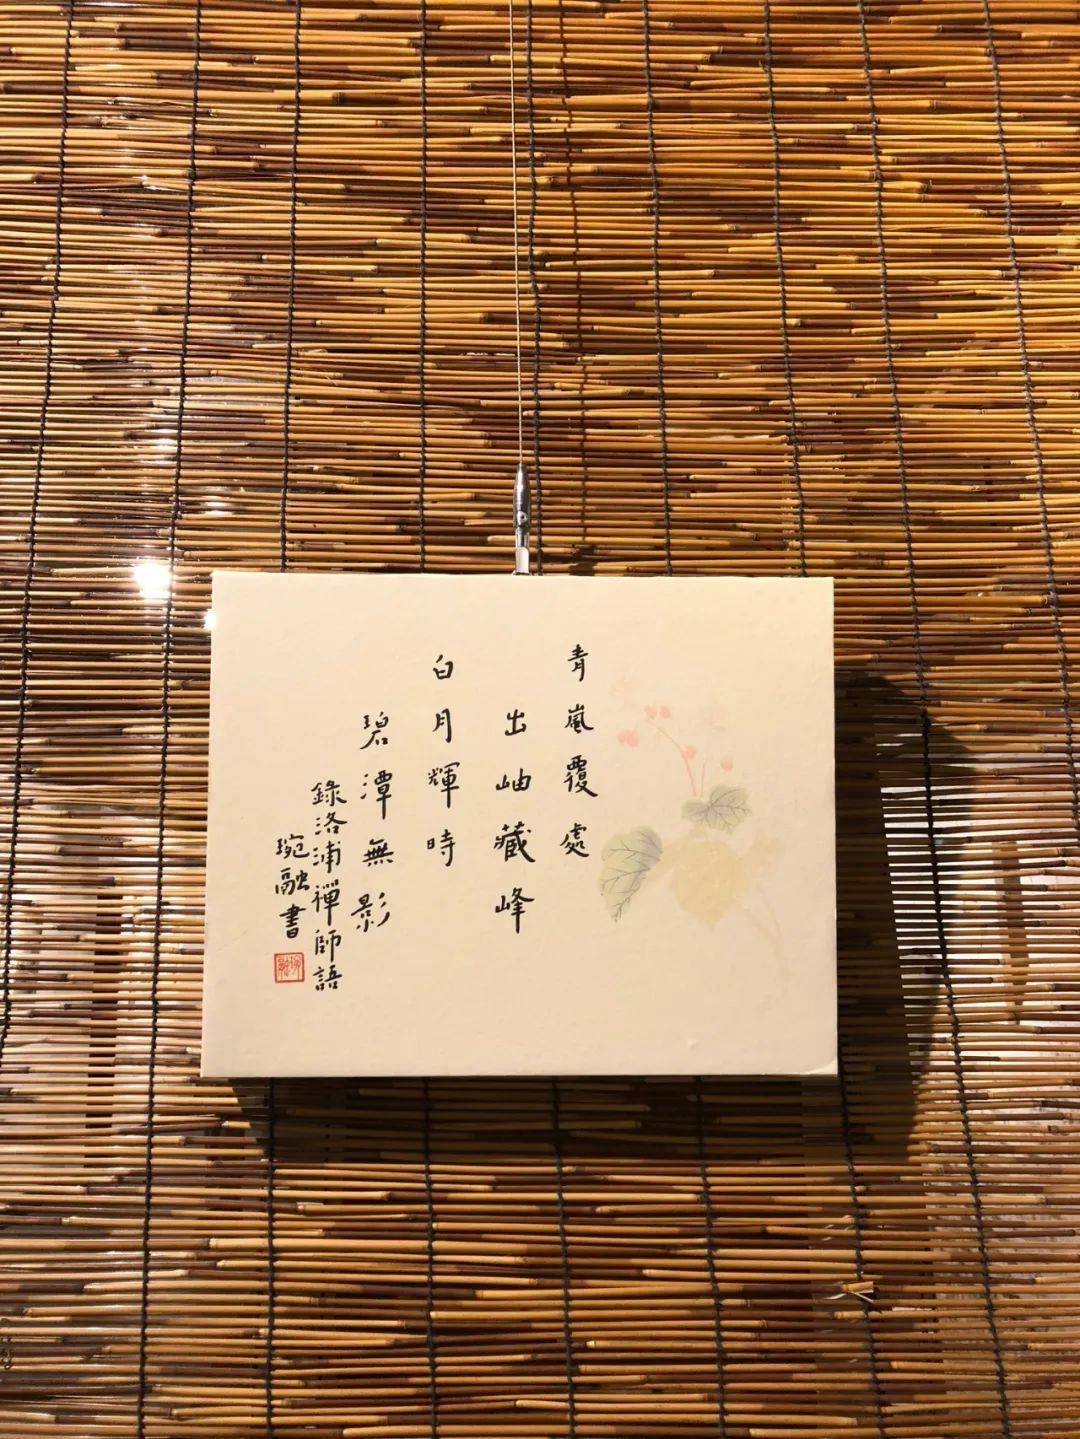 青嵐覆處
出岫藏峰
白月輝時
碧潭無影
錄洛浦禪師語
琬融書